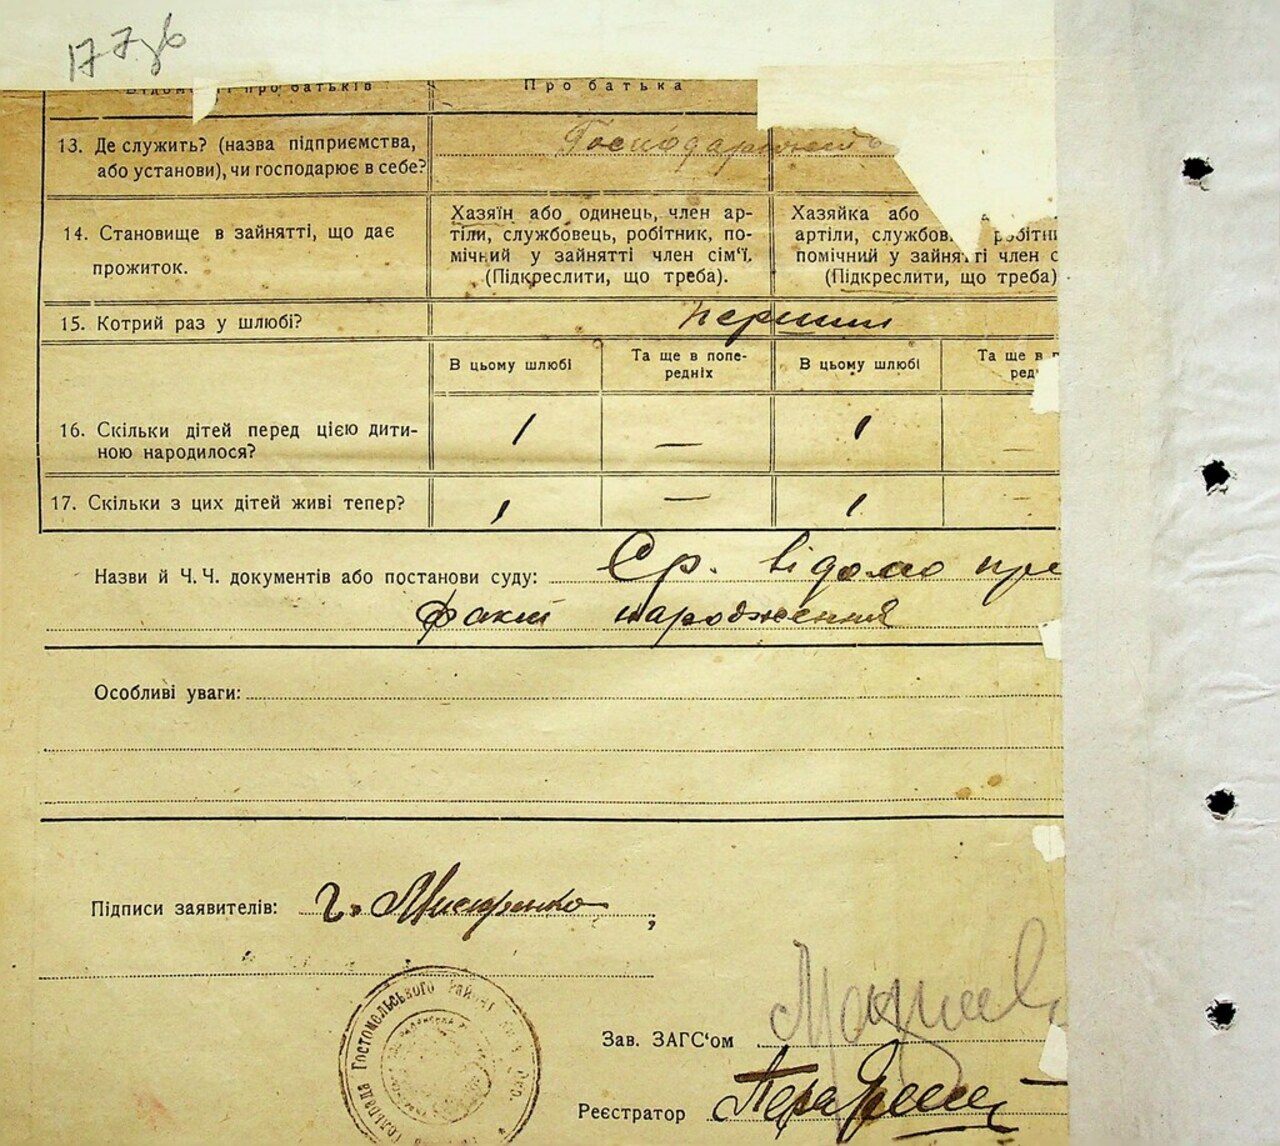 177зв
Відом і про батьків
Про батька
13. Де служить? (назва підприємства,
або установи), чи господарює в себе?
Господарюють
14. Становище в зайнятті, що дає
прожиток.
Хазяїн або одинець, член ар-
тілі, службовець, робітник, по-
мічний у зайнятті член сім'ї.
(Підкреслити, що треба).
Хазяйка або
артілі, службов. робітни
помічний у зайнятті член с
(Підкреслити, що треба)
15. Котрий раз у шлюбі?
перший
В цьому шлюбі
Та ще в попе-
редніх
В цьому шлюбі
Та ще в п
ред
16. Скільки дітей перед цією дити-
ною народилося?
1 — 1 —
17. Скільки з цих дітей живі тепер?
1 — 1 —
Назви й Ч.Ч. документів або постанови суду: Ср. відомо про
факт народження
Особливі уваги:
Підписи заявителів: Г.
Зав. ЗАГС'ом
Реєстратор
Гостомельського Район